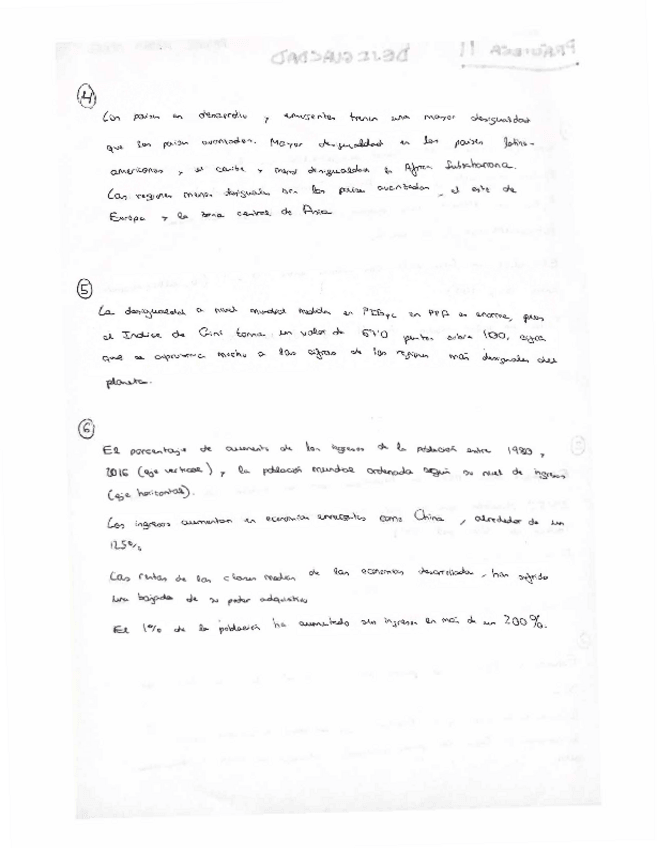 4
Los países en desarrollo y emergentes tienen una mayor desigualdad
que los países avanzados. Mayor desigualdad en los países latino-
americanos, el caribe y menos desigualdad en África Subsahariana.
Las regiones menos desiguales son los países avanzados, el este de
Europa y la zona central de Asia
5
La desigualdad a nivel mundial medida en PIBpc en PPA es enorme, pues
el Indice de Gini toma un valor de puntos sobre 100, cifra
que se aproxima mucho a las cifras de las regiones más desiguales del
planeta.
6
El porcentaje de aumento de los ingresos de la población entre 1980 y
2016 (eje vertical), y la población mundial ordenada según su nivel de ingresos
(eje horizontal).
Los ingresos aumentan en economías emergentes como China, alrededor de un
125%
Las rentas de las clases medias de las economías desarrolladas, han sufrido
una bajada de su poder adquisitivo
El 1% de la población ha aumentado sus ingresos en más de un 200%.